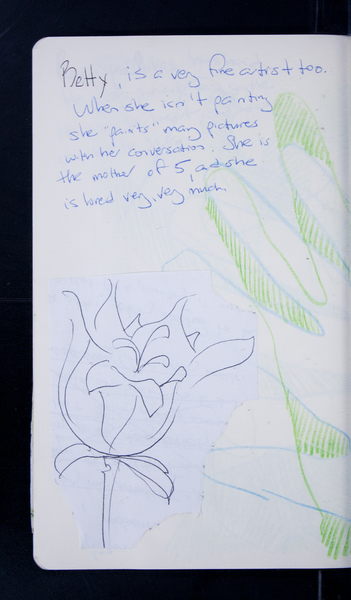 Betty, is a very fine artist too.
When she isn't painting
she "paints" many pictures
with her conversation. She is
the mother of 5, and she
is loved very, very much.